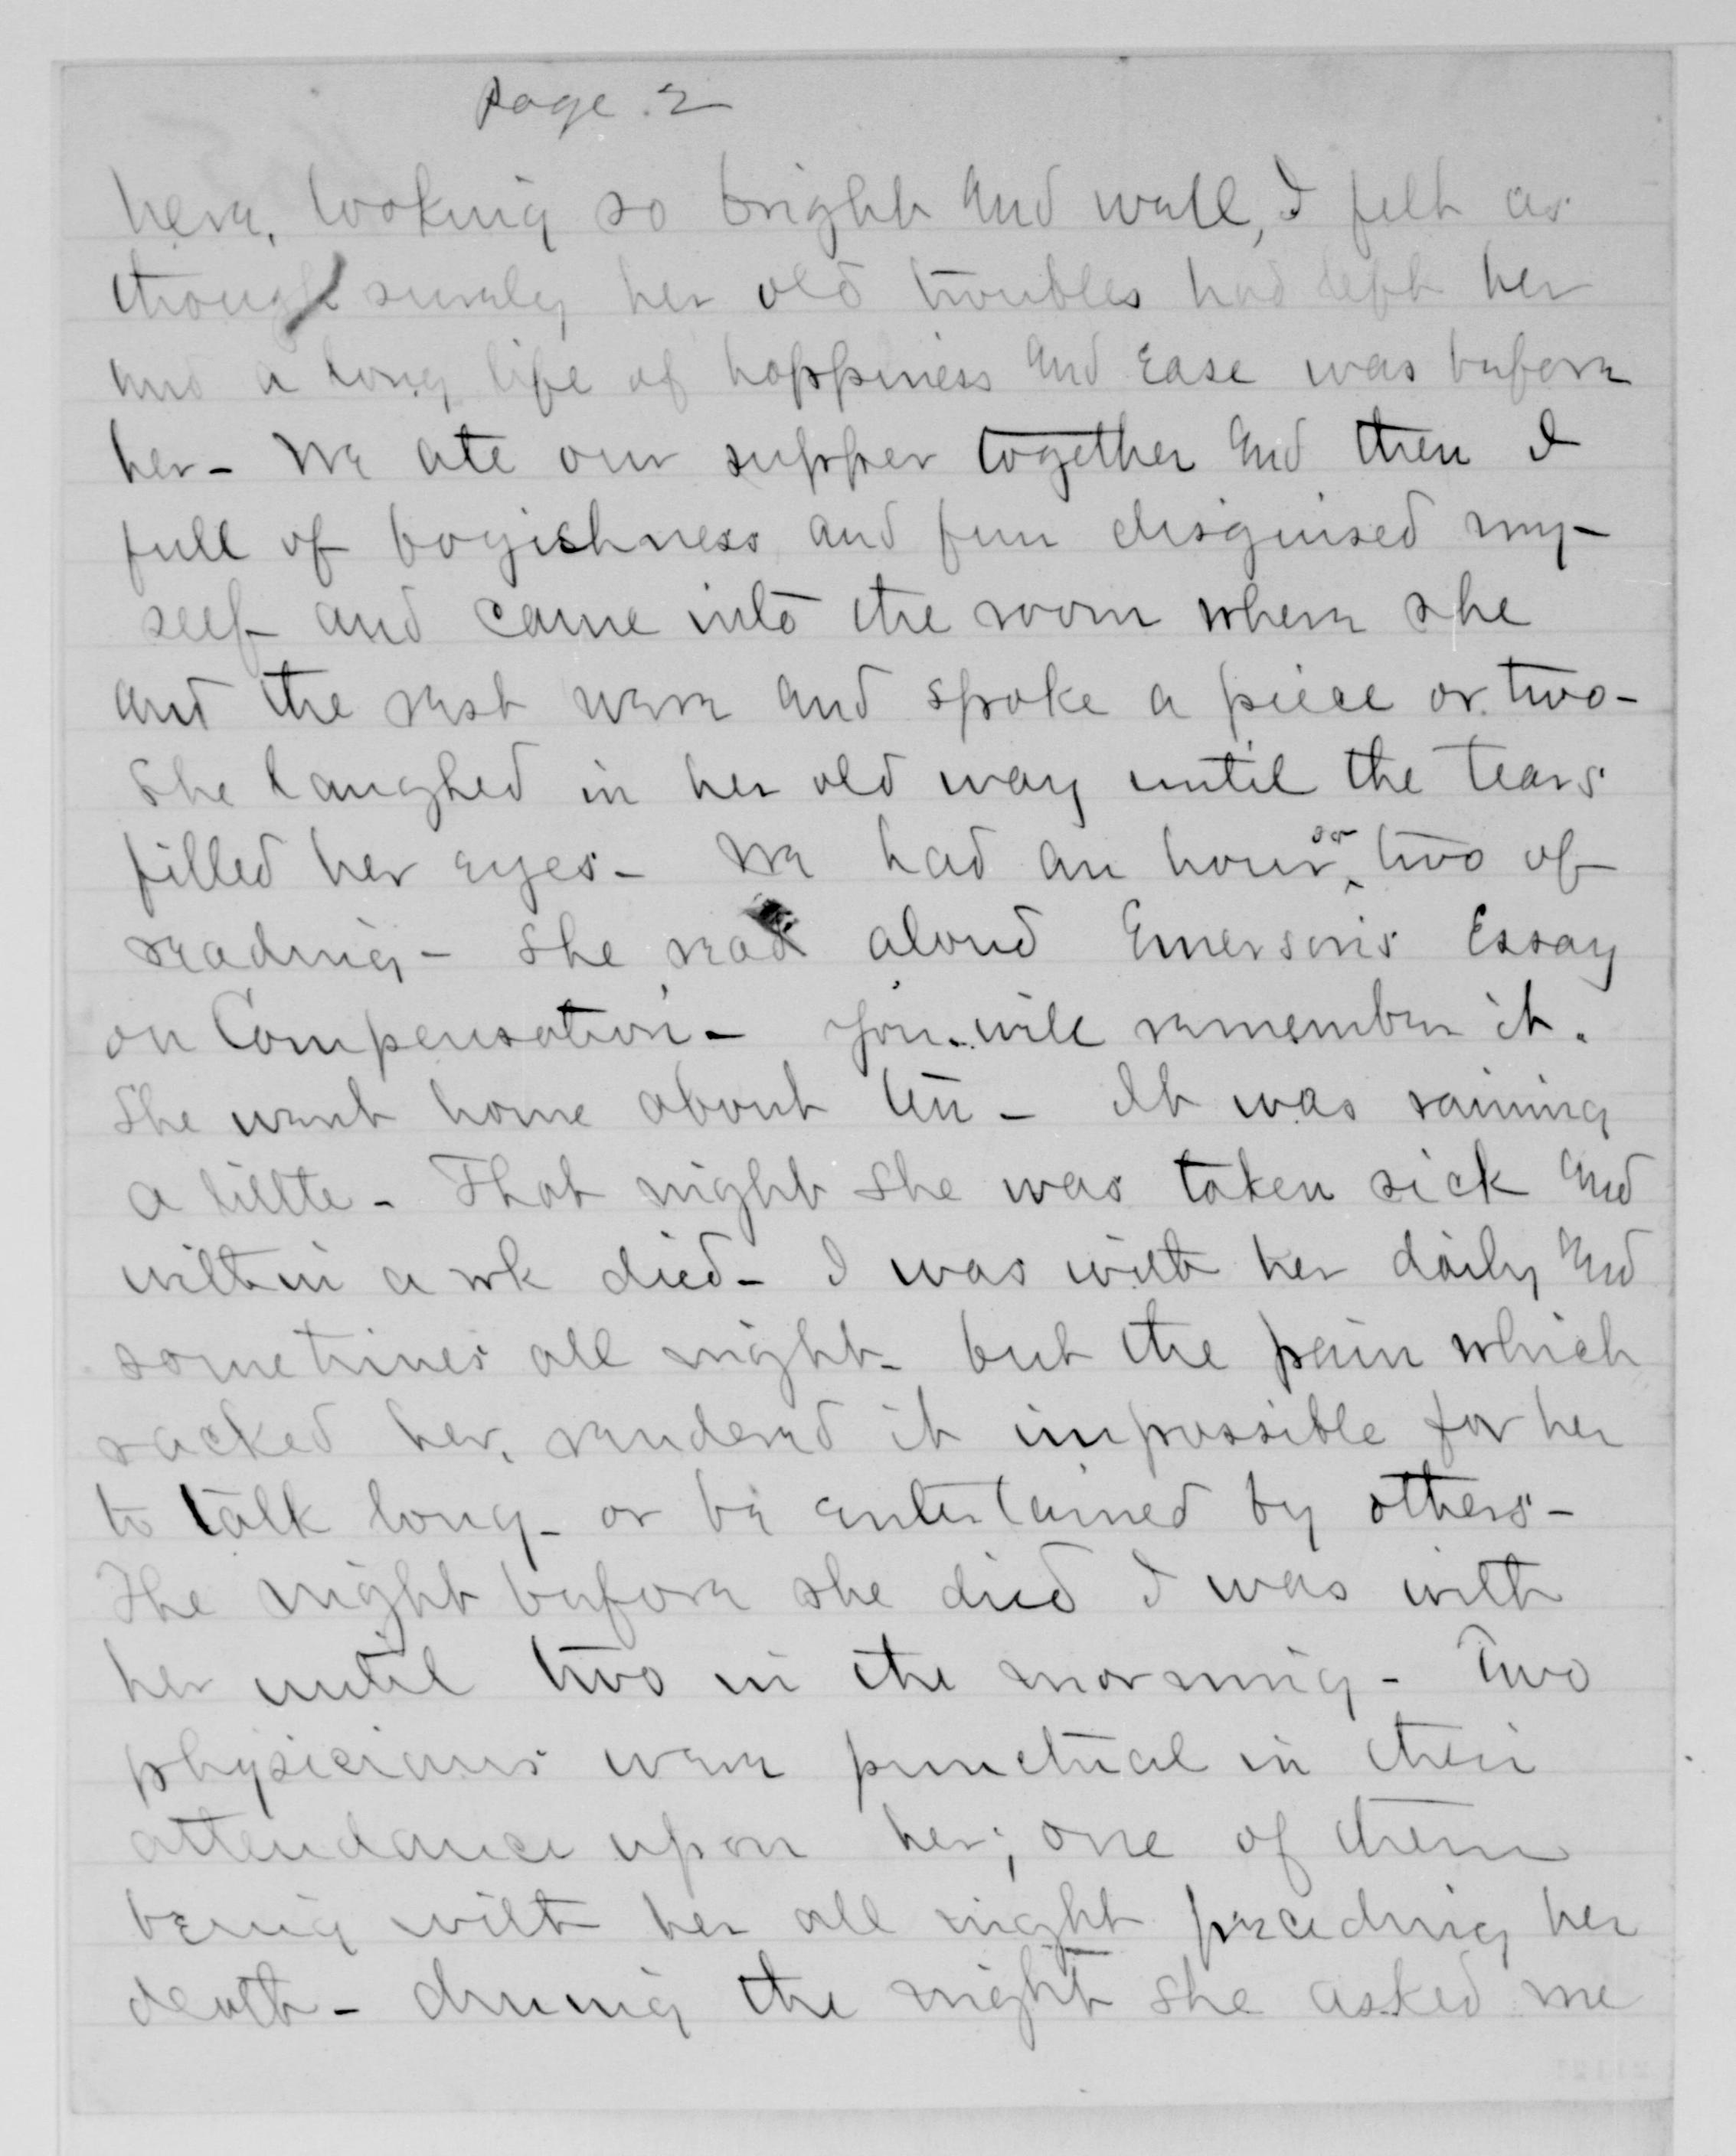 Page. 2
here, looking so bright and well, I felt as
though surely her old troubles had left her
and a long life of happiness and ease was before
her - We ate our supper together and then I
full of boyishness and fun disguised my-
self and came into the room where she
and the rest were and spoke a piece or two -
She laughed in her old way until the tears
filled her eyes - We had an hour or two of
reading - She read aloud Emerson's Essay
on Compensation - You will remember it.
She went home about ten - It was raining
a little - That night she was taken sick and
within a wk died - I was with her daily and
sometimes all night - but the pain which
racked her, rendered it impossible for her
to talk long - or be entertained by others -
The night before she died I was with
her until two in the morning - Two
physicians were punctual in their
attendance upon her; one of them
being with her all night preceding her
death - during the night she asked me